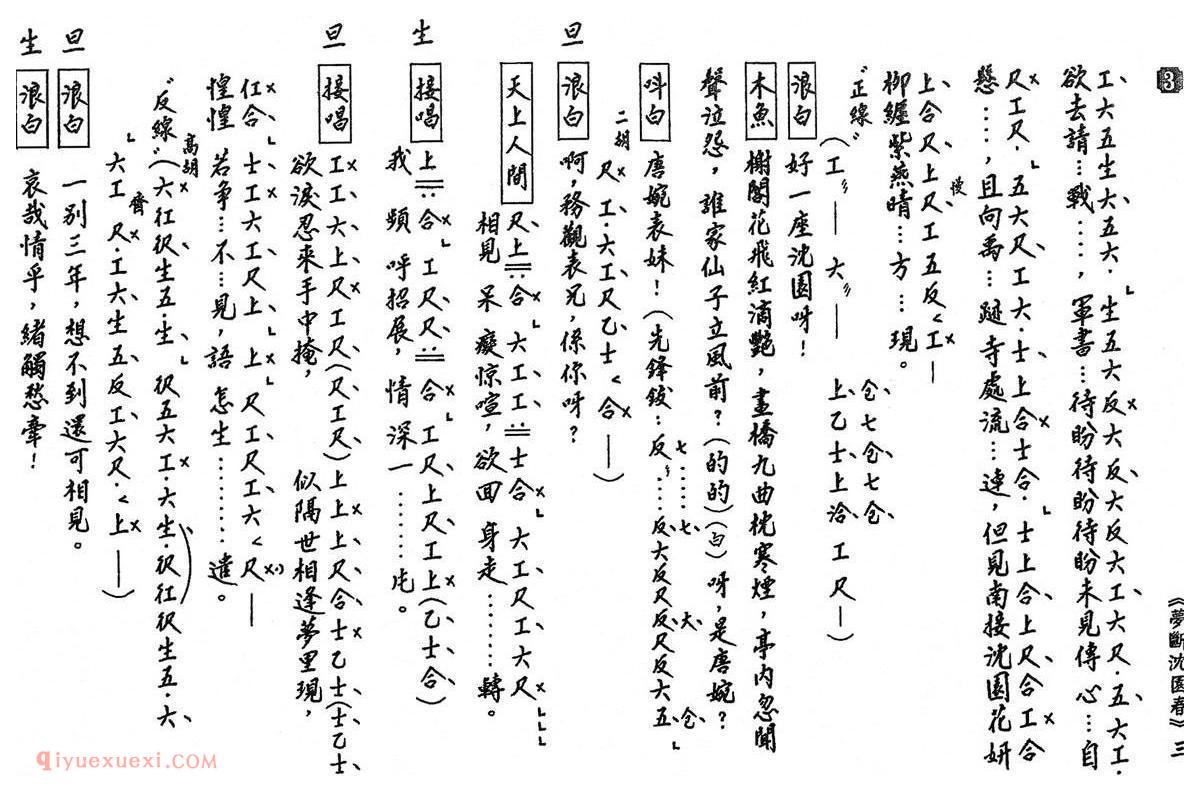 《夢斷沈园春》三
3
工大五生大五六.生五六反大反大反大工大尺.五大工.
欲去請…戰……,軍書…待盼待盼待盼未見傳 心…自
尺工尺.五六尺工大.士上合士合.士上合上尺合工合
懸……,且向禹…跡寺處流…連,但見南接沈園花妍
上合尺上尺工五反<工—
慢
柳纏紫燕晴…方…現。
“正線”
(工〻——大〻—— 上乙士上洽 工尺—)
仓七仓七仓
浪白 好一座沈园呀!
木魚 榭閣花飛紅滴艷,畫橋九曲枕寒煙,亭內忽聞
聲泣怨,誰家仙子立風前?(的的)(白)呀,是唐婉?
七……七 大 仓
呌白 唐婉表妹!(先鋒鈸:反〻……反大反尺反尺反大五
二胡
尺工.六工尺乙士<合—)
旦 浪白 啊,務觀表兄,係你呀?
天上人間 尺上合大工工士合大工尺工六尺
相見 呆癡惊喧,欲回 身走………轉。
生 接唱 上合工尺尺合工尺上尺工上(乙士合)
我 頻呼招展,情深一……片。
旦 接唱 工工六上尺工尺(尺工尺)上上上尺合士乙士(士乙士
欲淚忍来手中掩, 似隔世相逢夢里現,
仜合 士工六工尺上 上尺工尺工六<尺—
惶惶 若争…不…見,語 怎生………遣。
“反線” 高胡
(六仜伬生五.生 伬五六工.六生.伬仜伬生五.六
齊
六工尺.工六生五反工六尺.<上—)
旦 浪白 一别三年,想不到還可相見。
生 浪白 哀哉情乎,緒觸愁牽!
qiyuexuexi.com